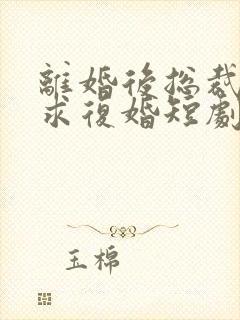 離婚後總裁
求復婚短劇
玉棉